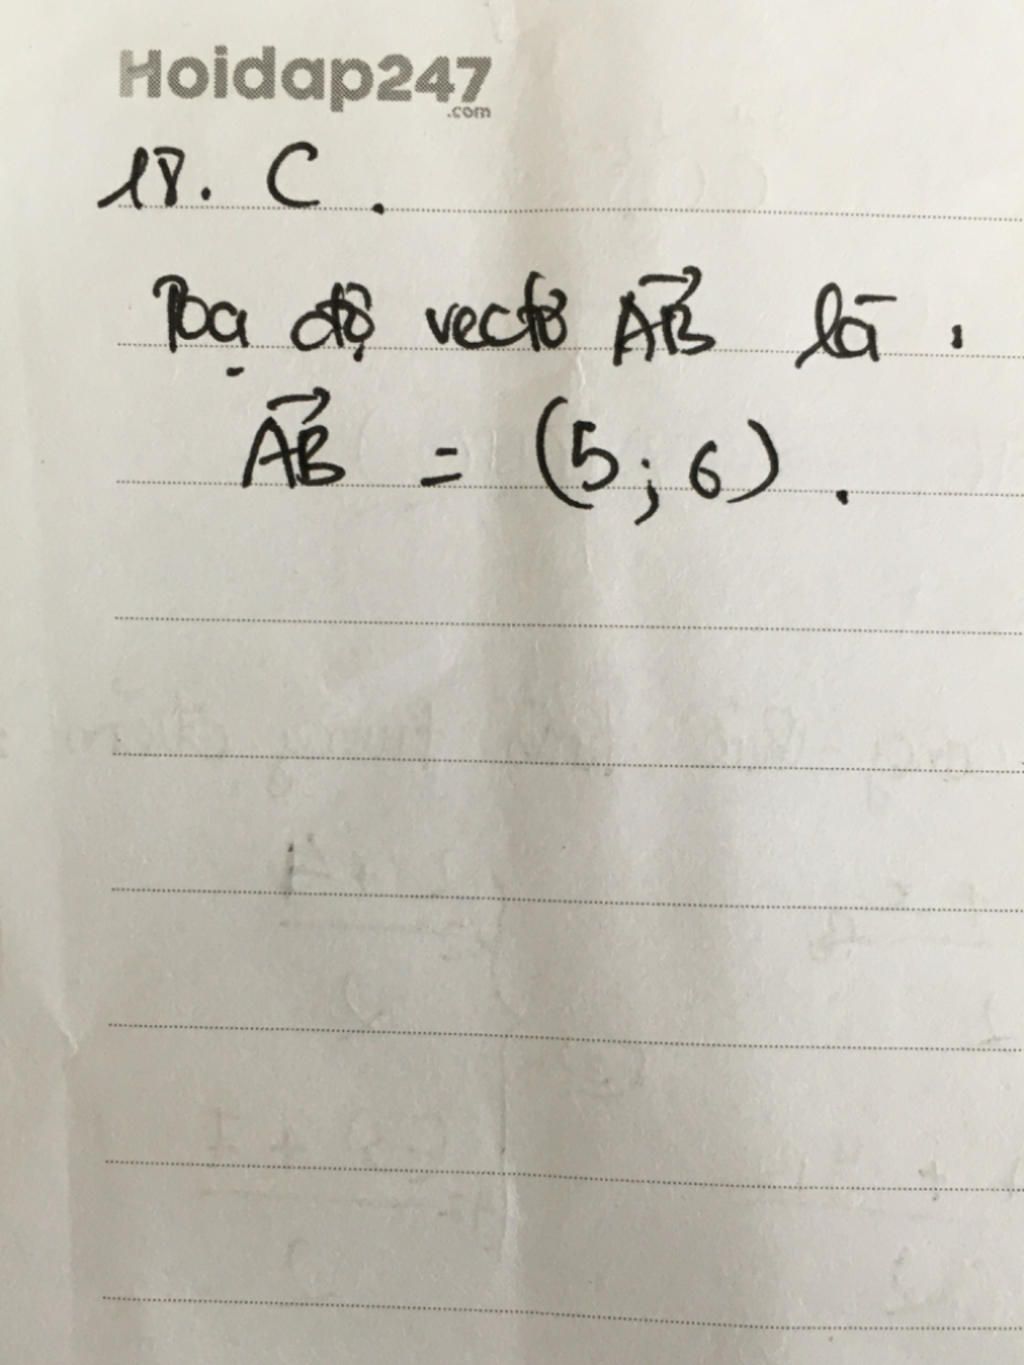 Hoidap247
.com
18. C.
Toạ độ vectơ AB là.
AB = (5; 6).